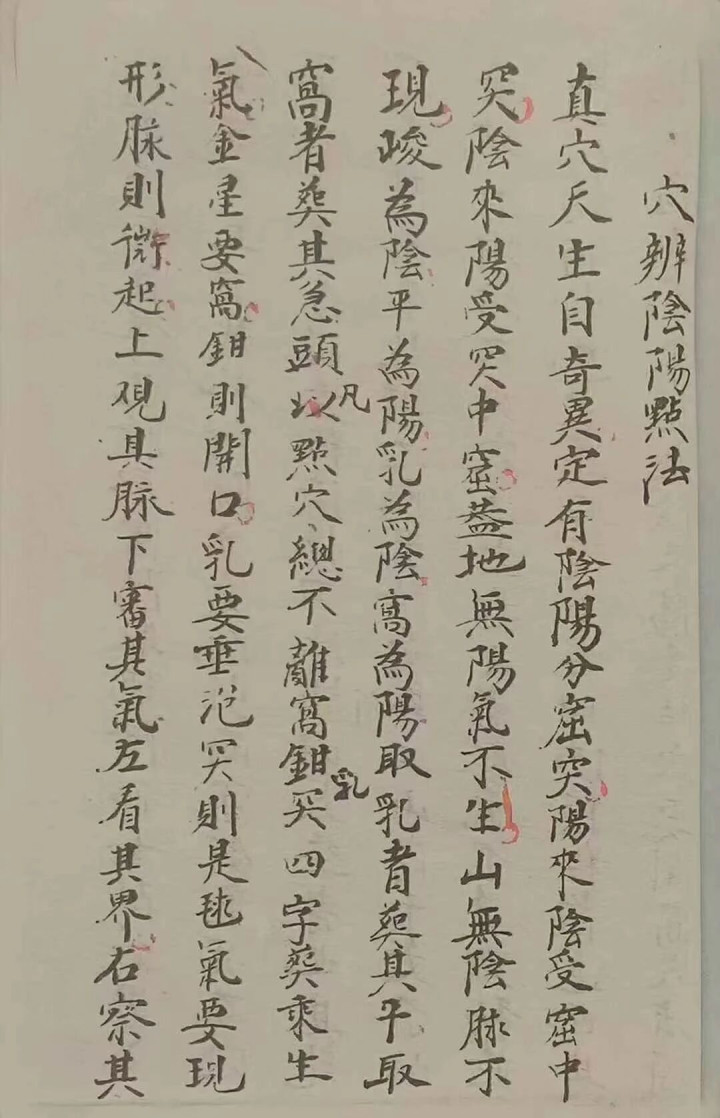 穴辨陰陽點法
真穴天生自奇異定有陰陽分窟突陽來陰受窟中
突陰來陽受突中窟蓋地無陽氣不生山無陰脉不
現峻為陰平為陽乳為陰窩為陽取乳者葬其平取
窩者葬其急頭凡以點穴總不離窩鉗乳突四字葬乘生
氣金星要窩鉗則開口乳要垂泡突則是毬氣要現
形脉則微起上观其脉下審其氣左看其界右察其